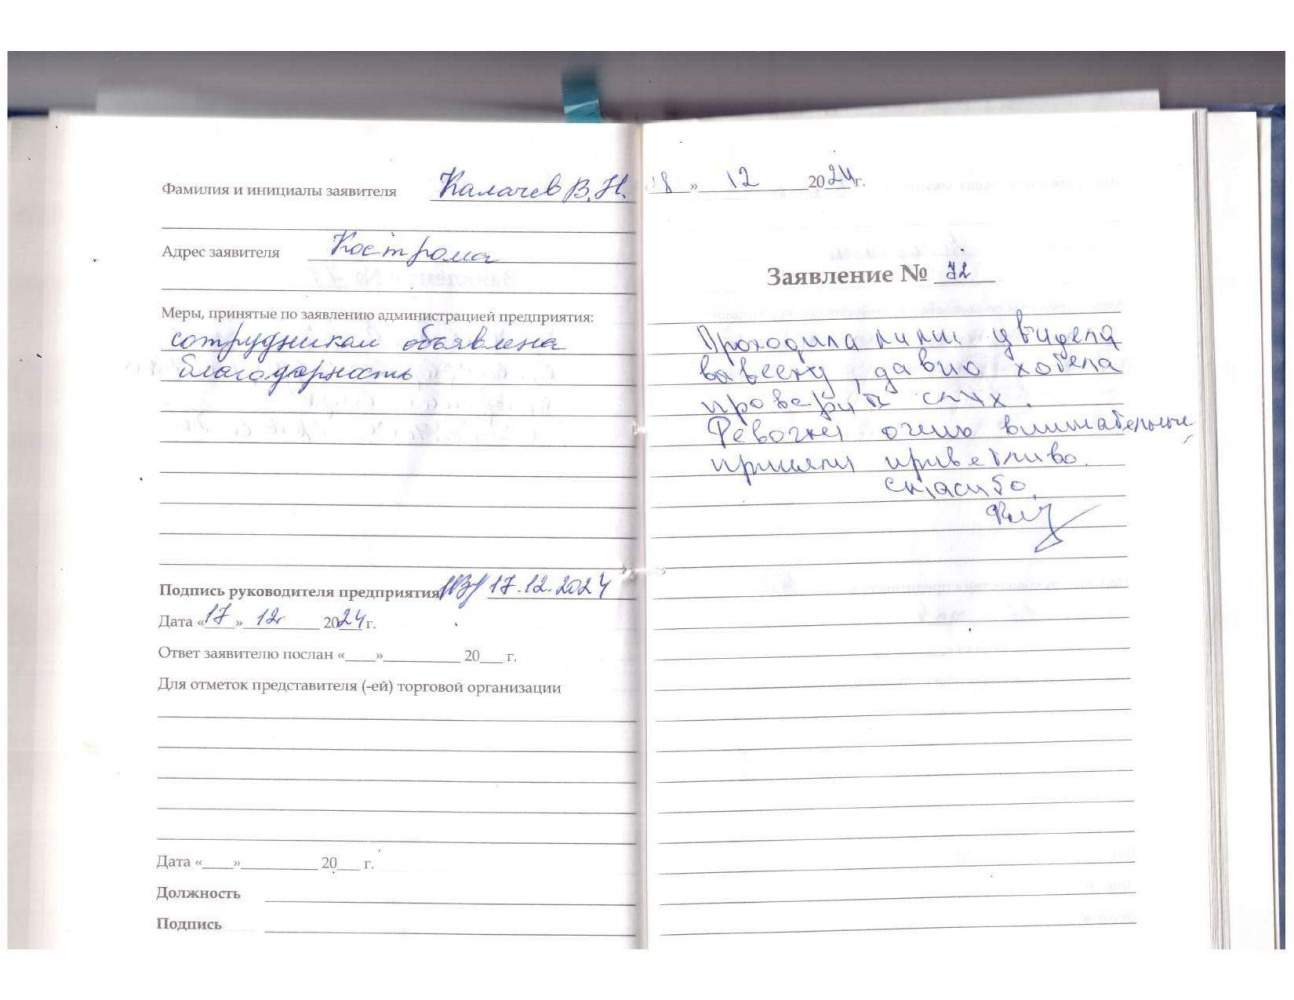 Фамилия и инициалы заявителя Калачев В.Н.
Адрес заявителя Кострома
Меры, принятые по заявлению администрацией предприятия:
сотрудникам объявлена
благодарность
Подпись руководителя предприятия 17.12.2024
Дата «17» 12 2024 г.
Ответ заявителю послан «____»__________ 20___ г.
Для отметок представителя (-ей) торговой организации
Дата «____»__________ 20___ г.
Должность
Подпись
18 » 12 2024 г.
Заявление № 72
Проходила мимо увидела
вывеску, давно хотела
проверить слух.
Девочки очень внимательные,
приняли приветливо.
Спасибо.